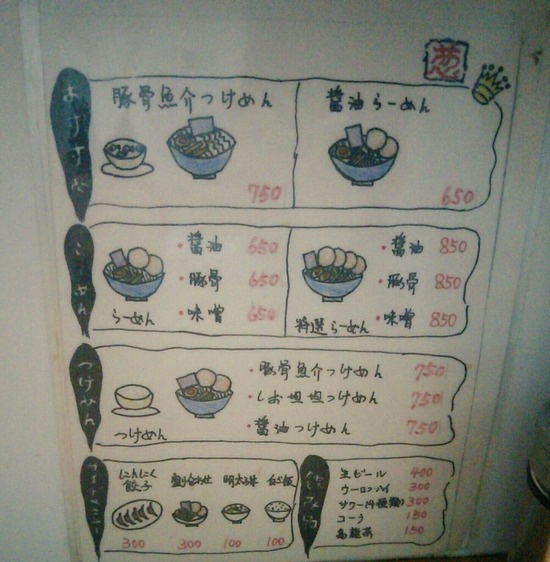 葱
おすすめ
豚骨魚介つけめん
750
醤油らーめん
650
らーめん
らーめん
・醤油 650
・豚骨 650
・味噌 650
特選らーめん
・醤油 850
・豚骨 850
・味噌 850
つけめん
つけめん
・豚骨魚介つけめん 750
・しお坦坦つけめん 750
・醤油つけめん 750
にんにく
餃子
300
盛り合わせ
300
明太子丼
100
白ご飯
100
飲み物
生ビール 400
ウーロンハイ 300
サワー(4種類) 300
コーラ 150
烏龍茶 150